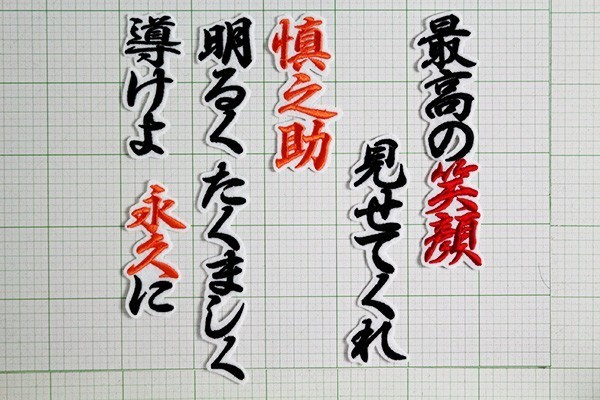 最高の笑顔
見せてくれ
慎之助
明るくたくましく
導けよ 永久に